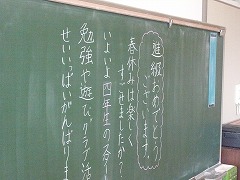 進級おめでとう
ございます。
春休みは楽しく
すごせましたか?
いよいよ四年生のスター
勉強や遊び、クラブ活
せいいっぱいがんばりま